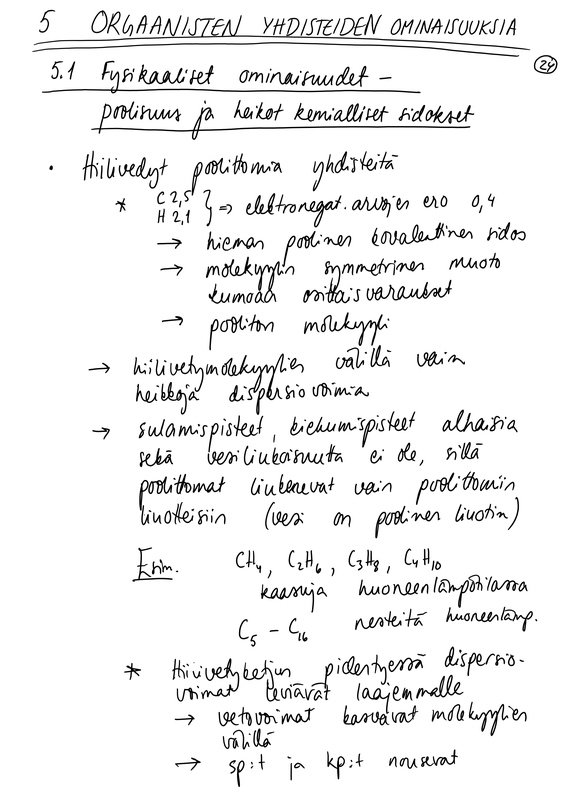 5 ORGAANISTEN YHDISTEIDEN OMINAISUUKSIA
24
5.1 Fysikaaliset ominaisuudet –
poolisuus ja heikot kemialliset sidokset
• Hiilivedyt poolittomia yhdisteitä
* C 2,5
H 2,1 } ⇒ elektronegat.arvojen ero 0,4
→ hieman poolinen kovalenttinen sidos
→ molekyylin symmetrinen muoto
kumoaa osittaisvaraukset
→ pooliton molekyyli
→ hiilivetymolekyylien välillä vain
heikkoja dispersiovoimia
→ sulamispisteet, kiehumispisteet alhaisia
sekä vesiliukoisuutta ei ole, sillä
poolittomat liukenevat vain poolittomiin
liuotteisiin (vesi on poolinen liuotin)
Esim. CH₄, C₂H₆, C₃H₈, C₄H₁₀
kaasuja huoneenlämpötilassa
C₅ – C₁₆ nesteitä huoneenlämp.
* Hiilivetyketjun pidentyessä dispersio-
voimat leviävät laajemmalle
→ vetovoimat kasvavat molekyylien
välillä
→ sp:t ja kp:t nousevat